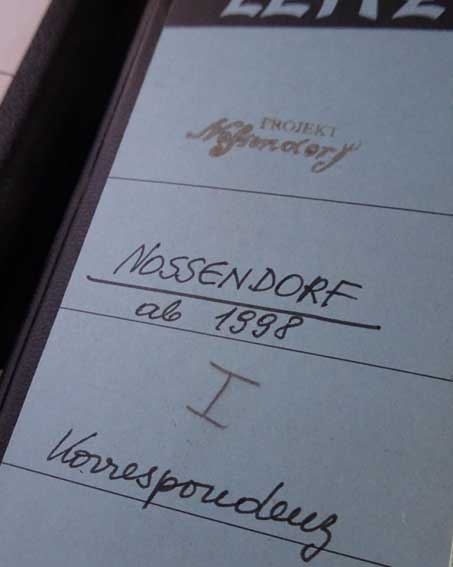 LEITZ
PROJEKT
Nossendorf
NOSSENDORF
ab 1998
I
Korrespondenz